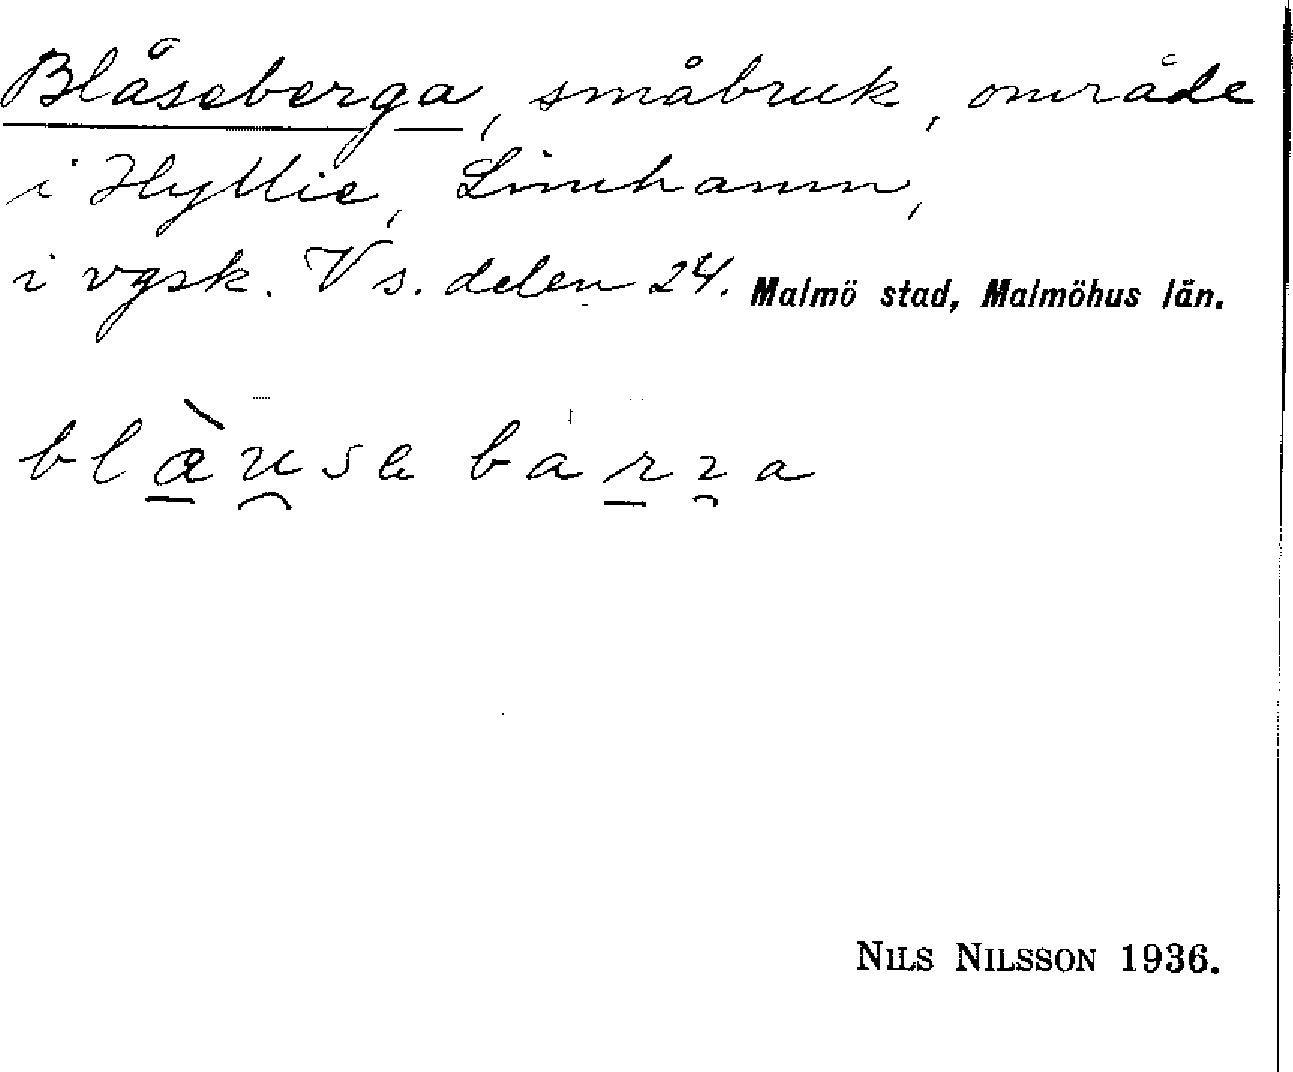 Blåseberga, småbruk, område
i Hyllie, Limhamn,
i vgsk. V s. delen 24. Malmö stad, Malmöhus län.
NILS NILSSON 1936.